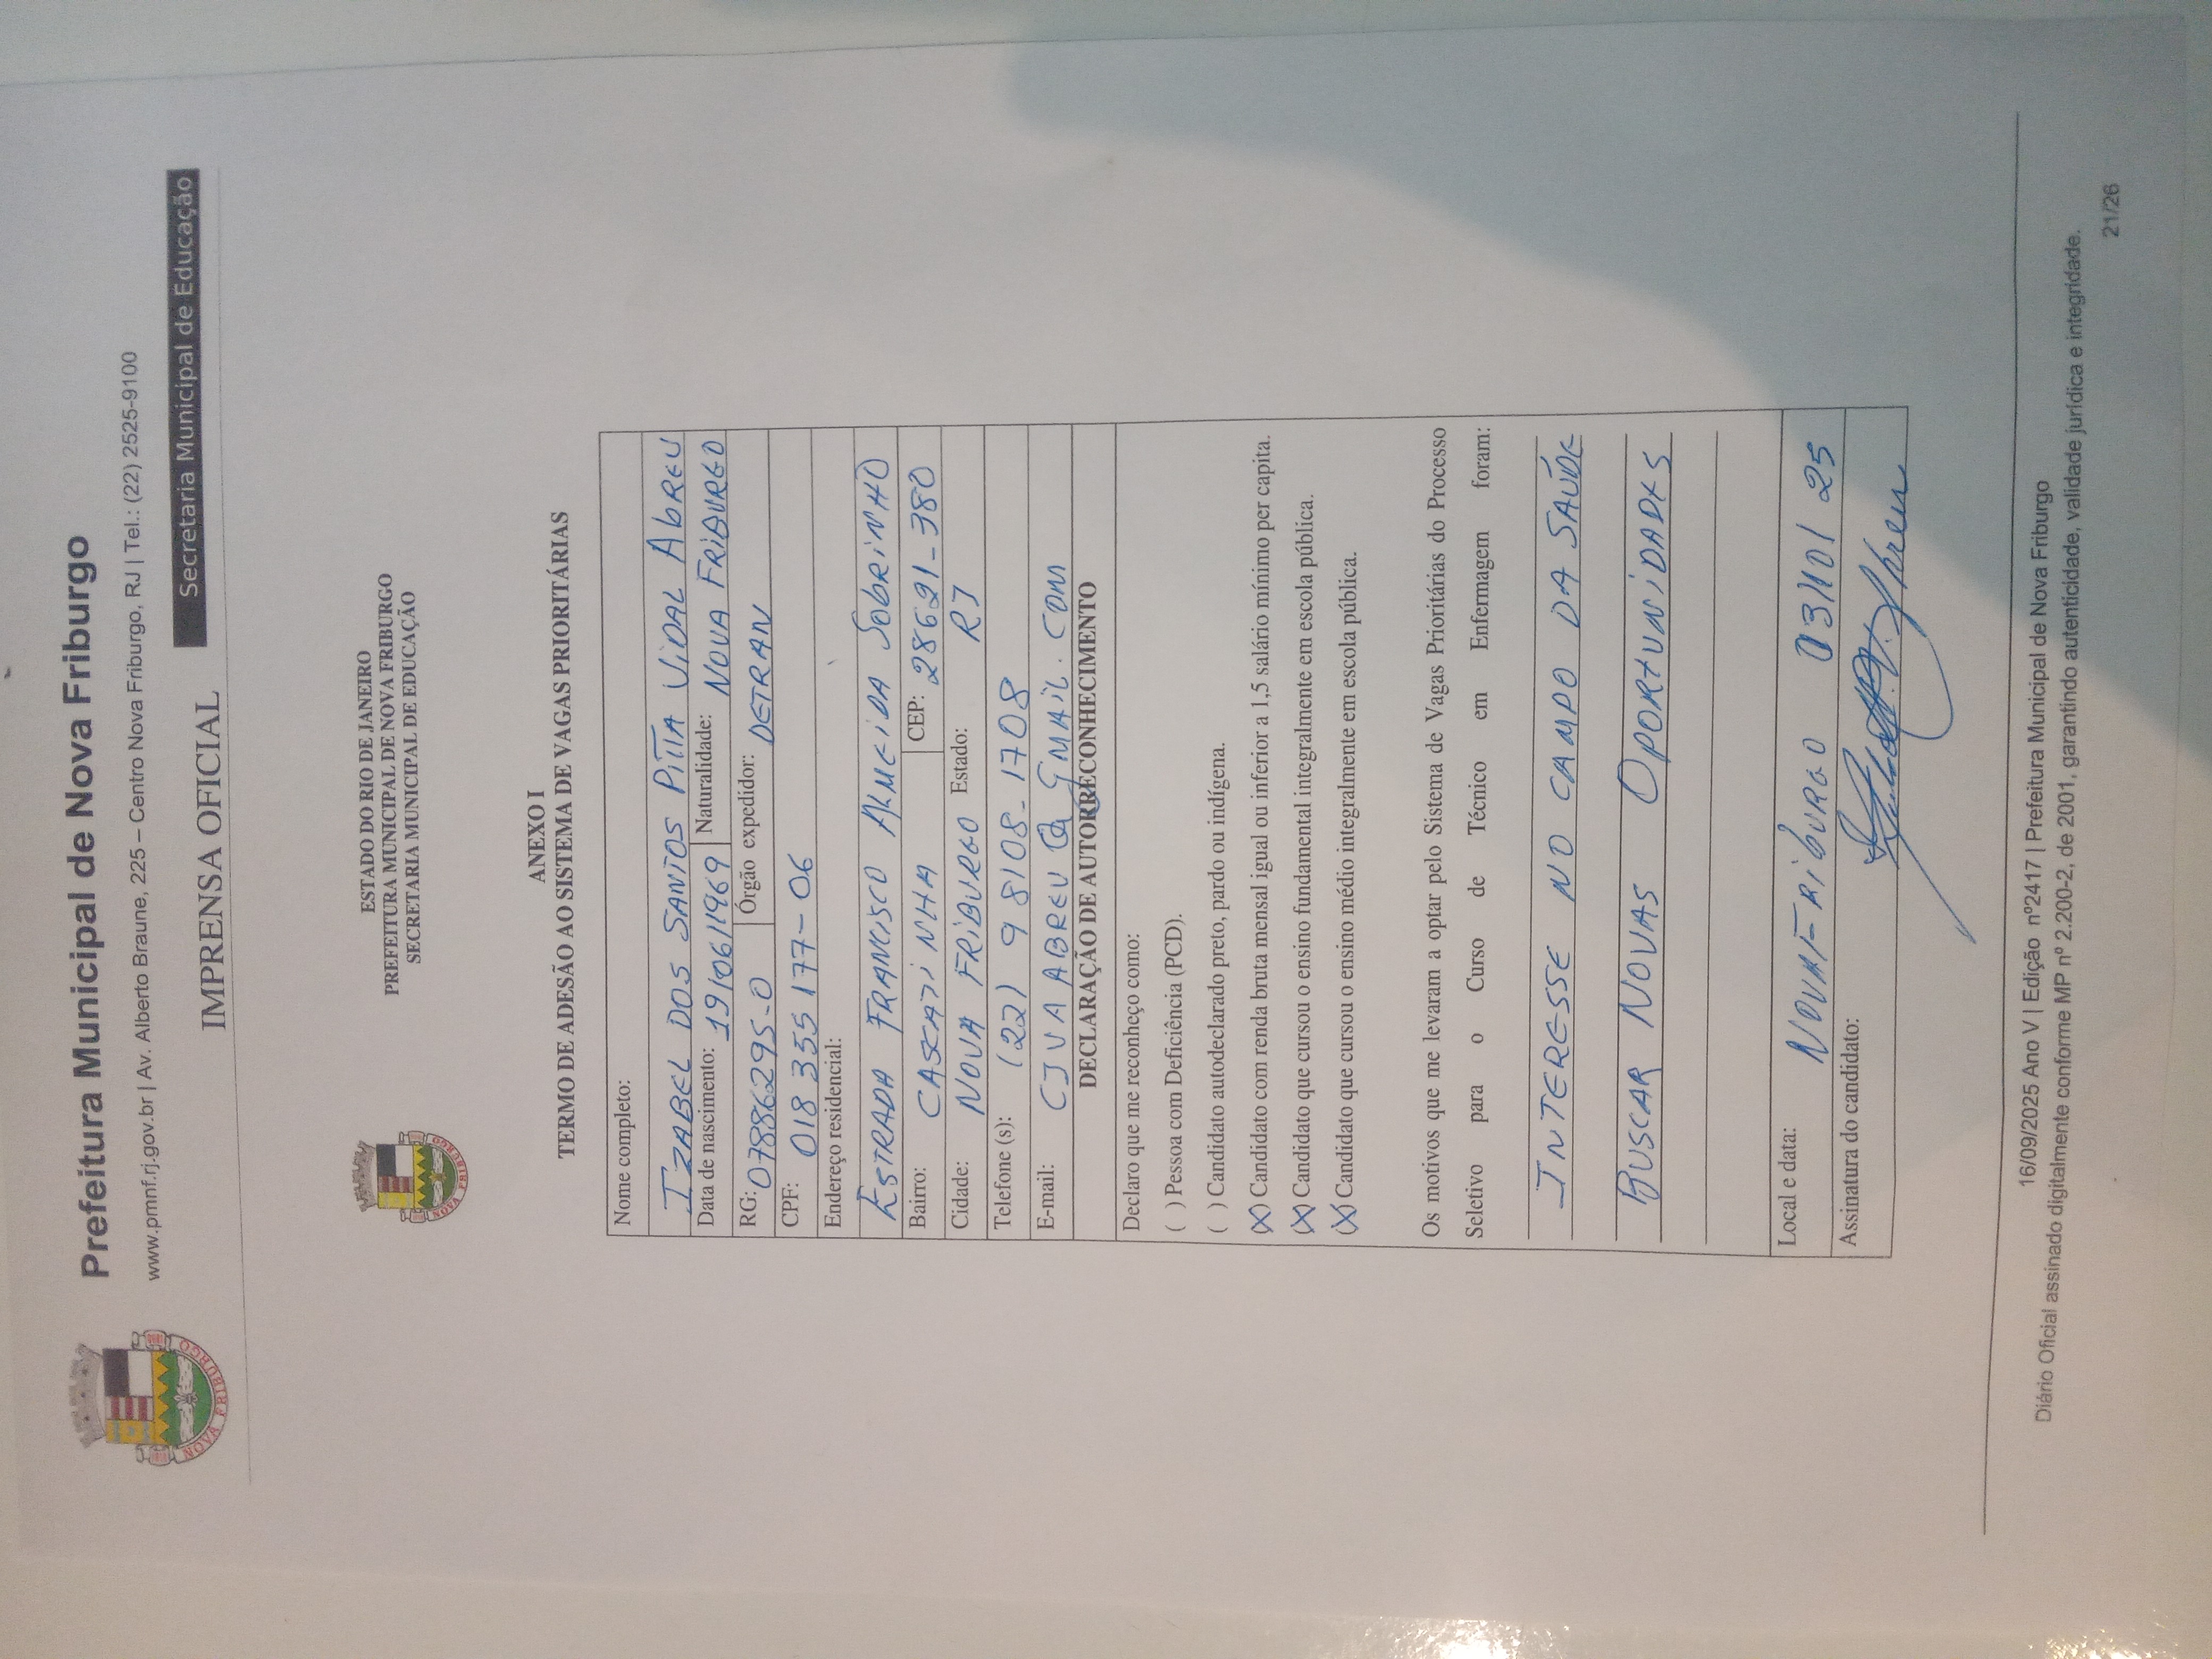 Prefeitura Municipal de Nova Friburgo
www.pmnf.rj.gov.br | Av. Alberto Braune, 225 – Centro Nova Friburgo, RJ | Tel.: (22) 2525-9100
Secretaria Municipal de Educação
IMPRENSA OFICIAL
NOVA FRIBURGO
ESTADO DO RIO DE JANEIRO
PREFEITURA MUNICIPAL DE NOVA FRIBURGO
SECRETARIA MUNICIPAL DE EDUCAÇÃO
NOVA FRIBURGO
ANEXO I
TERMO DE ADESÃO AO SISTEMA DE VAGAS PRIORITÁRIAS
Nome completo:
IZABEL DOS SANTOS PITTA VIDAL ABREU
Data de nascimento: 19/06/1969 Naturalidade: NOVA FRIBURGO
RG: 07886295-0 Órgão expedidor: DETRAN
CPF: 018 355 177-06
Endereço residencial:
ESTRADA FRANCISCO ALMEIDA SOBRINHO
Bairro: CASCATINHA CEP: 28621-380
Cidade: NOVA FRIBURGO Estado: RJ
Telefone (s): (22) 98108-1708
E-mail: CJVAABREU@GMAIL.COM
DECLARAÇÃO DE AUTORRECONHECIMENTO
Declaro que me reconheço como:
( ) Pessoa com Deficiência (PCD).
( ) Candidato autodeclarado preto, pardo ou indígena.
(X) Candidato com renda bruta mensal igual ou inferior a 1,5 salário mínimo per capita.
(X) Candidato que cursou o ensino fundamental integralmente em escola pública.
(X) Candidato que cursou o ensino médio integralmente em escola pública.
Os motivos que me levaram a optar pelo Sistema de Vagas Prioritárias do Processo
Seletivo para o Curso de Técnico em Enfermagem foram:
INTERESSE NO CAMPO DA SAÚDE
BUSCAR NOVAS OPORTUNIDADES
Local e data: NOVA FRIBURGO 03/10/25
Assinatura do candidato:
16/09/2025 Ano V | Edição nº2417 | Prefeitura Municipal de Nova Friburgo
Diário Oficial assinado digitalmente conforme MP nº 2.200-2, de 2001, garantindo autenticidade, validade jurídica e integridade.
21/26